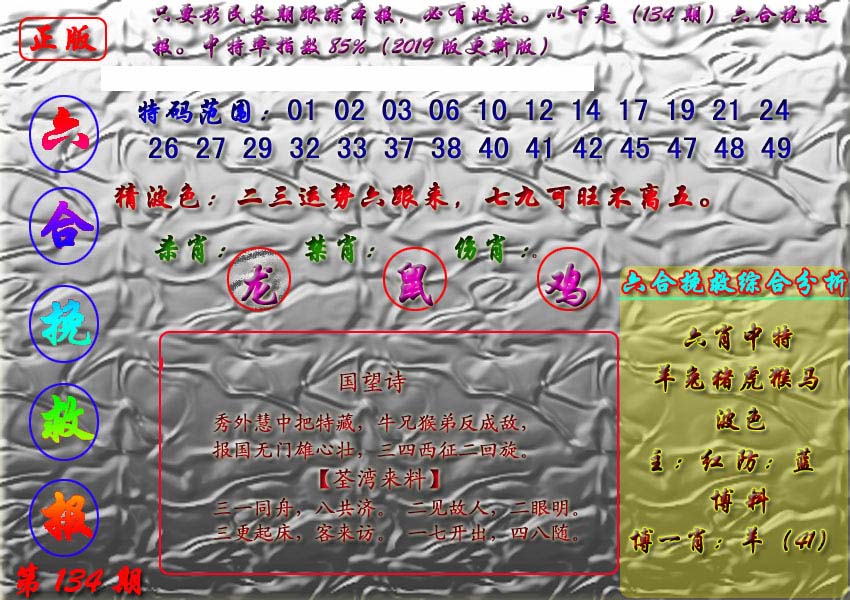 正版
只要彩民长期跟踪本报，必有收获。以下是（134期）六合挽救
报。中特率指数85%（2019版更新版）
六合挽救报
第134期
特码范围：01 02 03 06 10 12 14 17 19 21 24
26 27 29 32 33 37 38 40 41 42 45 47 48 49
猜波色：二三运势六跟来，七九可旺不离五。
杀肖：龙 禁肖：鼠 伤肖：鸡。
国望诗
秀外慧中把特藏，牛兄猴弟反成敌，
报国无门雄心壮，三四西征二回旋。
【荃湾来料】
三一同舟，八共济。 二见故人，二眼明。
三更起床，客来访。 一七开出，四八随。
六合挽救综合分析
六肖中特
羊兔猪虎猴马
波色
主：红防：蓝
博料
博一肖：羊（41）